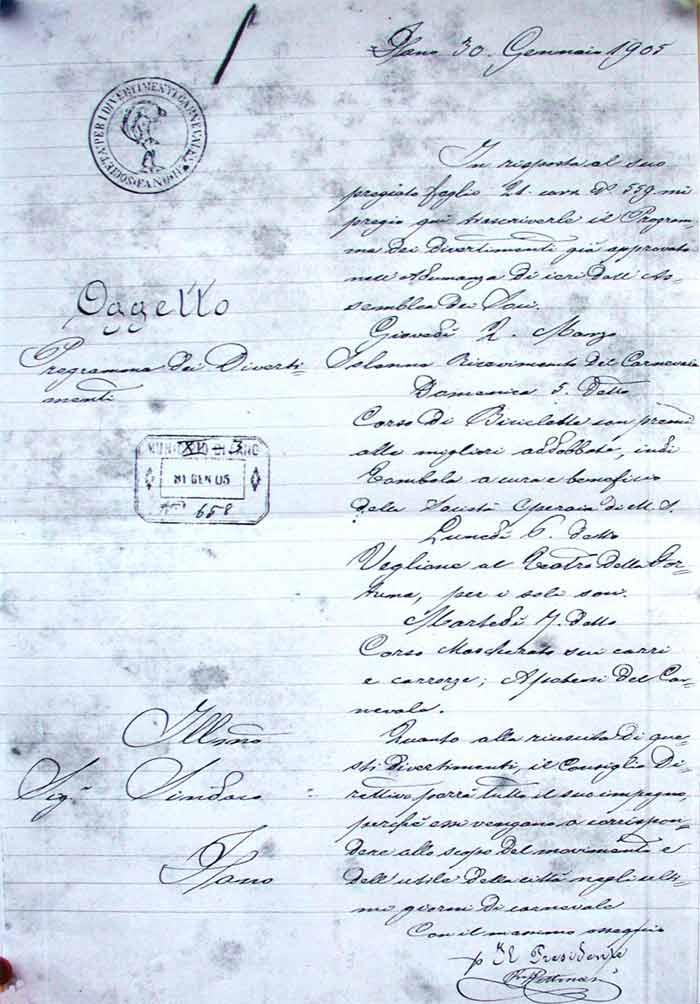 Fano 30. Gennaio 1905
SOCIETÀ PER I DIVERTIMENTI CARNEVALESCHI
FANO
In risposta al suo
pregiato foglio 21. corr. N° 559. mi
pregio qui trascriverle il Program-
ma dei divertimenti già approvato
nell'Adunanza di ieri dall'As-
semblea dei Soci.
Oggetto
Programma dei Diverti-
menti
Giovedì 2. Marzo
Solenne Ricevimento del Carnevale
Domenica 5. detto
Corso di Biciclette con premi
alle migliori addobbate, indi
Tombola a cura e beneficio
della Società Operaia di M. S.
MUNICIPIO DI FANO
31 GEN 05
N° 658
Lunedì 6. detto
Veglione al Teatro della For-
tuna, per i soli soci.
Martedì 7. detto
Corso Mascherato sui carri
e carrozze; Apoteosi del Car-
nevale.
Quanto alla riuscita di que-
sti divertimenti, il Consiglio Di-
rettivo porrà tutto il suo impegno,
perché essi vengano a corrispon-
dere allo scopo del movimento e
dell'utile della città negli ulti-
mi giorni di carnevale
Con il massimo ossequio
p Il Presidente
Illmo
Sigr Sindaco
Fano